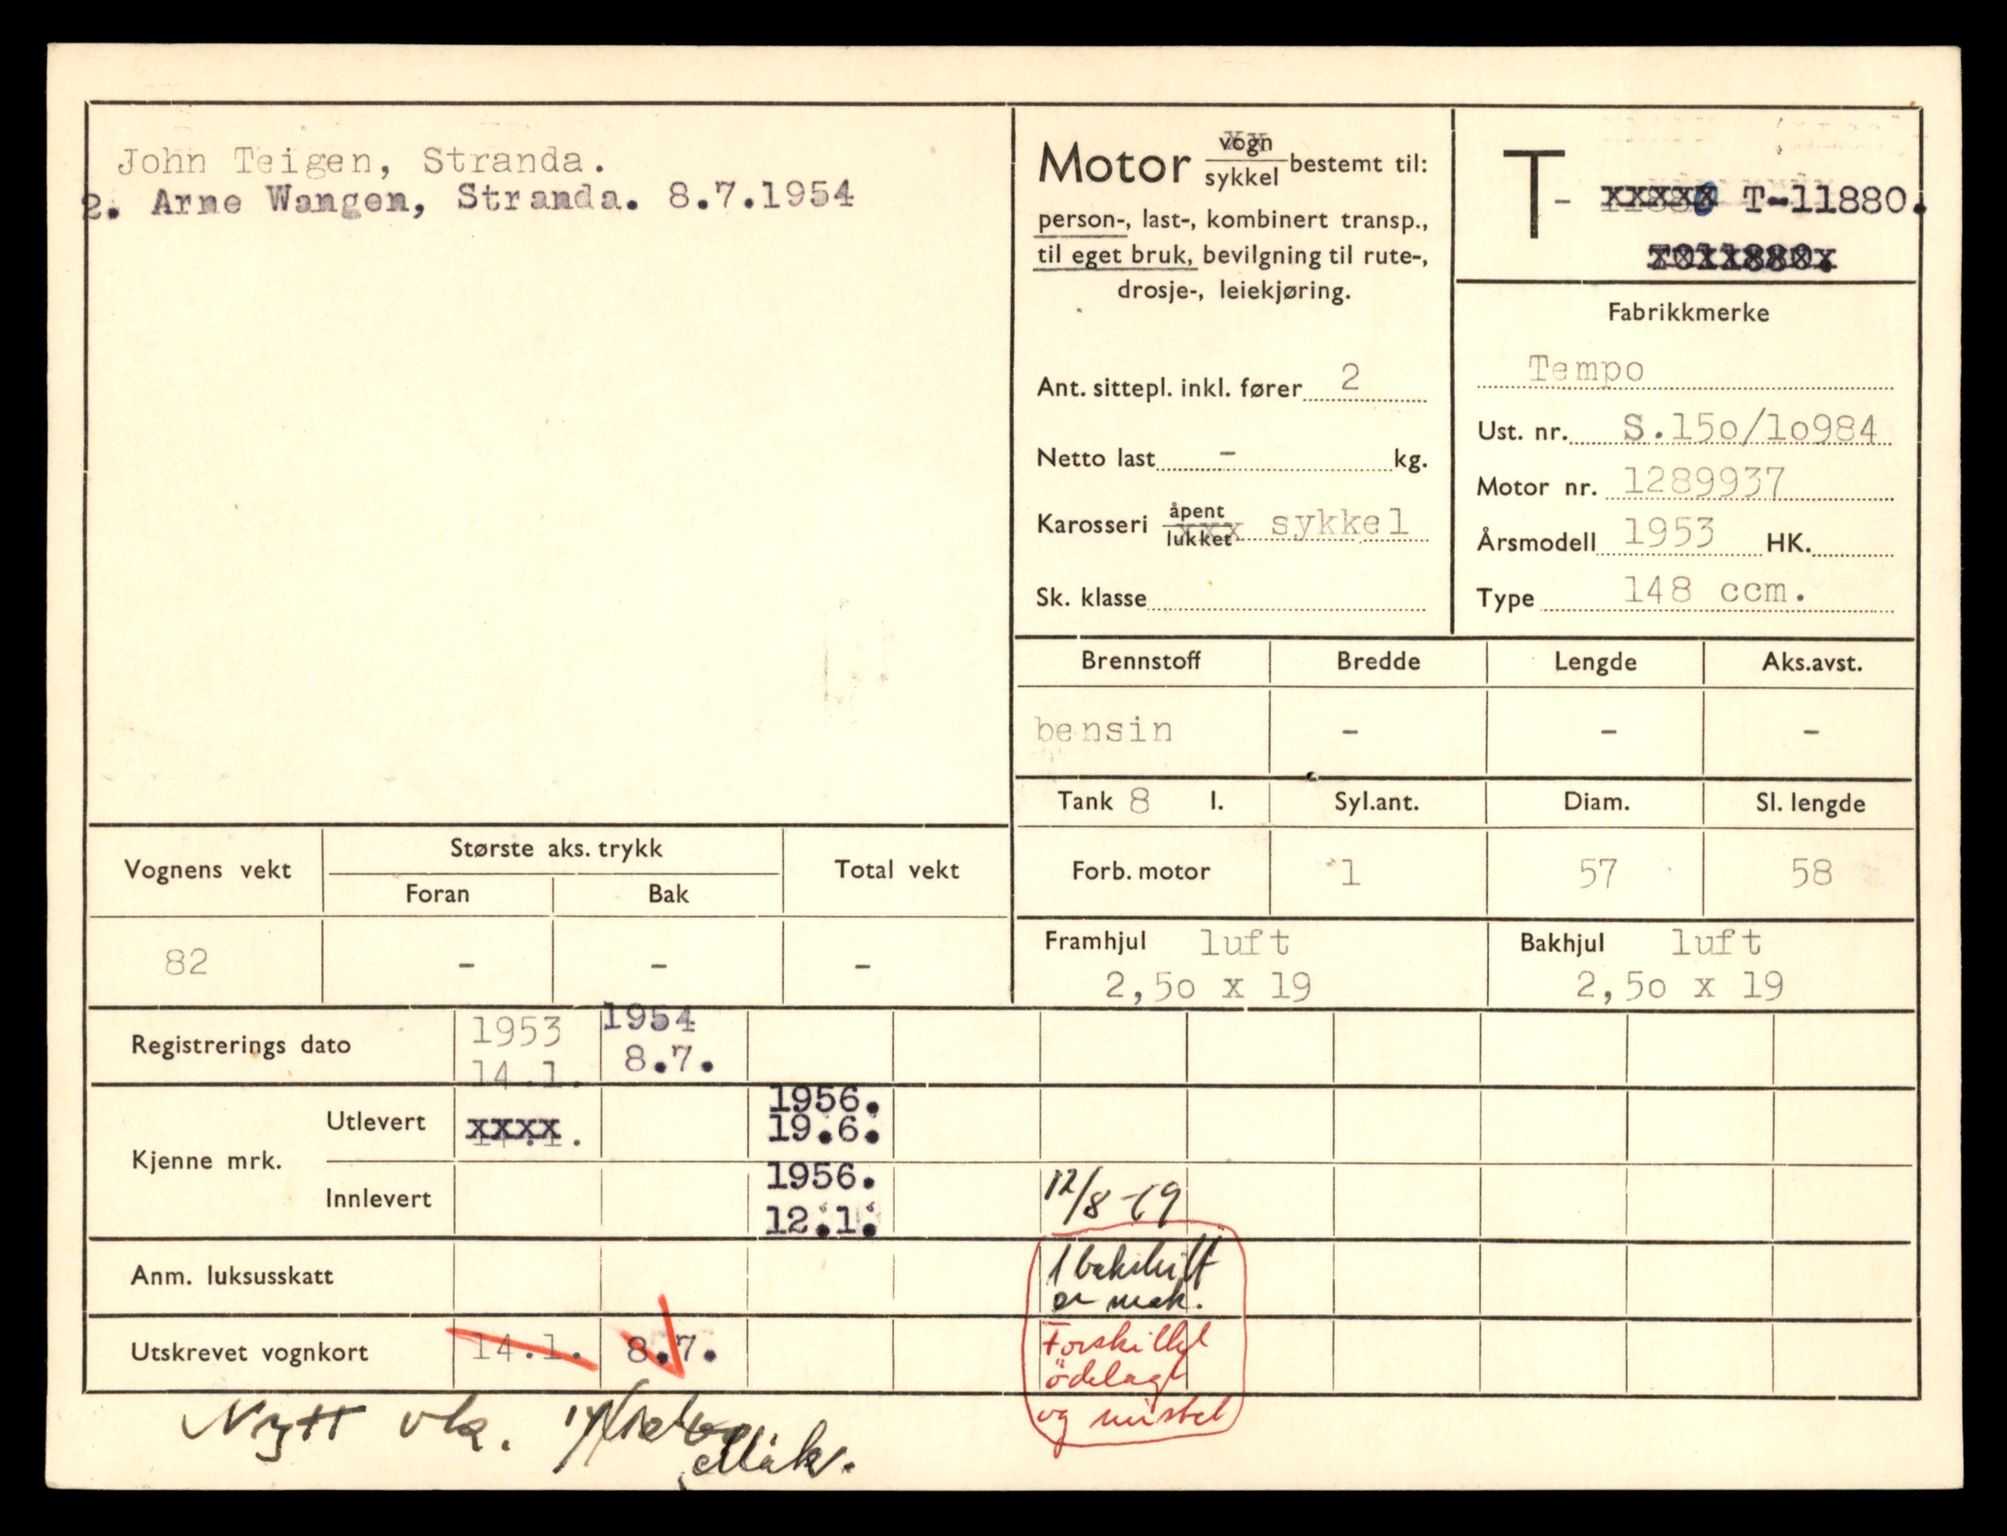 John Teigen, Stranda.
2. Arne Wangen, Stranda. 8.7.1954
Motor vogn/sykkel bestemt til:
person-, last-, kombinert transp.,
til eget bruk, bevilgning til rute-,
drosje-, leiekjøring.
Ant. sittepl. inkl. fører 2
Netto last - kg.
Karosseri åpent/lukket sykkel
Sk. klasse
T- xxxxx T-11880.
T011880.
Fabrikkmerke
Tempo
Ust. nr. S.15o/1o984
Motor nr. 1289937
Årsmodell 1953 HK.
Type 148 ccm.
Brennstoff Bredde Lengde Aks.avst.
bensin - - -
Tank 8 l. Syl.ant. Diam. Sl. lengde
Forb. motor 1 57 58
Framhjul luft Bakhjul luft
2,5o x 19 2,5o x 19
Vognens vekt Største aks. trykk Total vekt
Foran Bak
82 - - -
Registrerings dato 1953 1954
14.1. 8.7.
Kjenne mrk.
Utlevert xxxx 1956.
19.6.
Innlevert 1956. 12/8-69
12.1.
Anm. luksusskatt 1 bakskilt
er mak.
Utskrevet vognkort 14.1. 8.7. Forskillet
ödelagt
og mistet
Nytt vk.